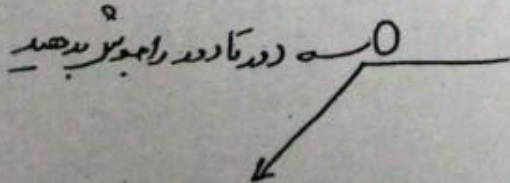 دور تا دور را جوش بدهید